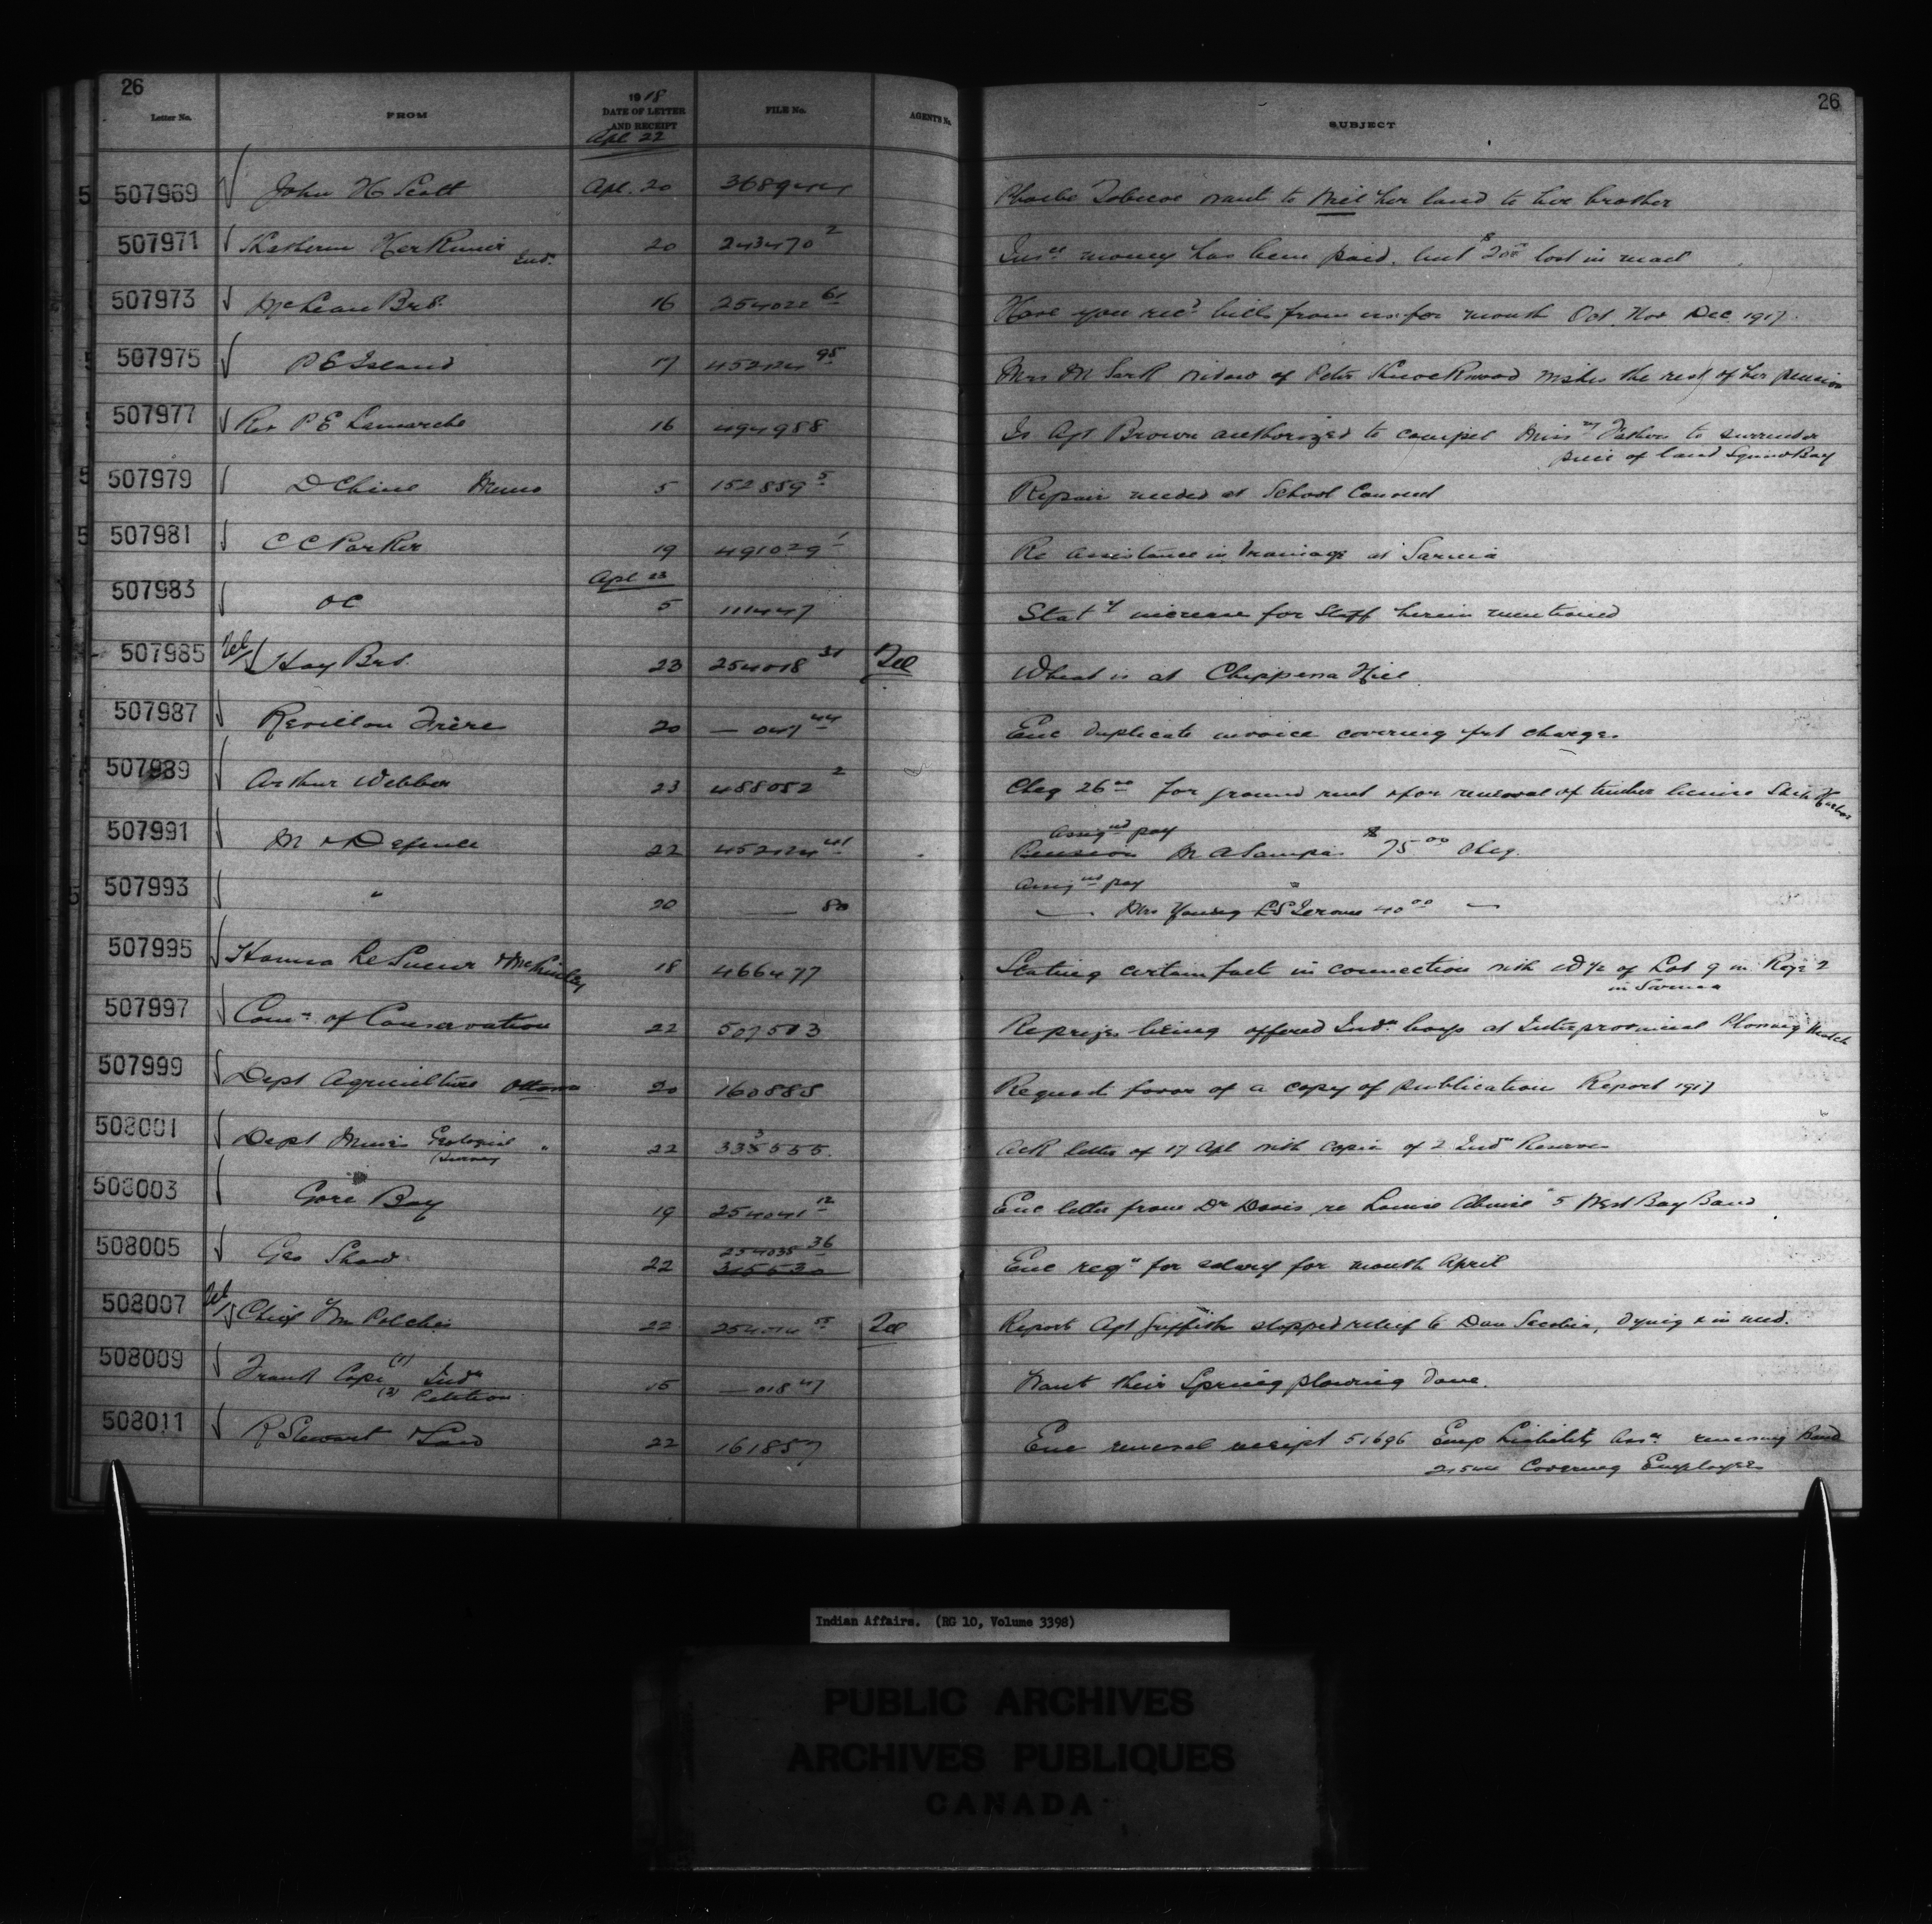 26
26
Letter No. FROM 1918 DATE OF LETTER AND RECEIPT FILE No. AGENT'S No. SUBJECT
Apl 22
507969 John H Scott Apl. 20 Phoebe want to will her land to her brother
507971 Ind. 20 243470 2 Ins ce money has been paid, but lost in mail
507973 McLean Bros. 16 254022 61 Have you rec'd bills from us for month Oct. Nov Dec. 1917
507975 P E Island 17 452124 95 Mrs M Sark widow of Peter Knockwood wishes the rest of her pension
507977 Rev P E Lamarche 16 494988 Is Agt Brown authorized to compel Miss ry Fathers to surrender
piece of land Bay
507979 Memo 5 152859 5 Repair needed at School
507981 C C Parker 19 491029 1 Re assistance in Drainage at Sarnia
Apl 23
507983 O C 5 111447 Stat y increase for Staff herein mentioned
507985 Tel Hay Bros. 23 254018 31 Tel What is at Chippewa Hill
507987 Revillon Frère 20 — 047 44 Enc duplicate invoice covering frt charges
507989 Arthur Webber 23 488052 2 Cheq 26 00 for ground rent & for renewal of timber license
507991 M & Defence 22 452124 41 Assig ed pay
Pension M A $ 75 00 Cheq.
507993 " 20 — 80 Assig ed pay "
— Mrs Young 40 00 —
507995 Hanna LeSueur & McKinley 18 466477 Stating certain fact in connection with W ½ of Lot 9 in Rge 2
in Sarnia
507997 Com n of Conservation 22 507503 Re prizes being offered Ind n boys at Interprovincial Plowing Match
507999 Dept Agriculture Ottawa 20 160885 Request favor of a copy of publication Report 1917
508001 Dept Mines Geological Survey " 22 335555 3 Ack letter of 17 Apl with copies of 2 Ind n Reserves
508003 Gore Bay 19 254041 12 Enc letter from Dr Davis re Louise West Bay Band
508005 Geo Shaw 22 254035 36
315530 Enc req n for salary for month April
508007 Tel Chief Wm 22 Tel Report Agt Griffith stopped relief to Dan dying & in need.
508009 Frank Cope (1) Ind n
(2) Petition 15 — 018 47 Want their Spring plowing done.
508011 R Stewart 22 161857 Enc renewal receipt 51696 Emp Liability Ass ce renewing Bond
Covering Employees
Indian Affairs. (RG 10, Volume 3398)
PUBLIC ARCHIVES
ARCHIVES PUBLIQUES
CANADA